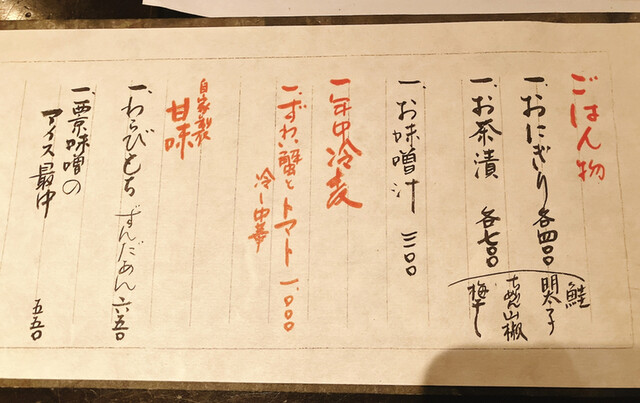 ごはん物
一、おにぎり 各四〇〇
一、お茶漬 各七〇〇
鮭
明太子
ちりめん山椒
梅干し
一、お味噌汁 三〇〇
一、年中冷麦
一、ずわい蟹とトマト 一、〇〇〇
冷し中華
自家製
甘味
一、わらびもち ずんだあん 六五〇
一、西京味噌の
アイス最中 五五〇